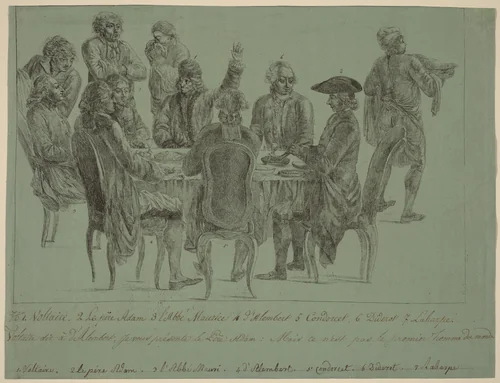 Voltaire, 2 le père Adam 3 l'Abbé Maurice 4 d'Alembert 5 Condorcet, 6 Diderot 7 Laharpe
dit à d'Alembert, je vous présente le Père Adam : Mais ce n'est pas le premier homme du monde
1 Voltaire. 2 le père Adam. 3 l'Abbé Mauri. 4 d'Alembert 5 Condorcet 6 Diderot. 7 Laharpe